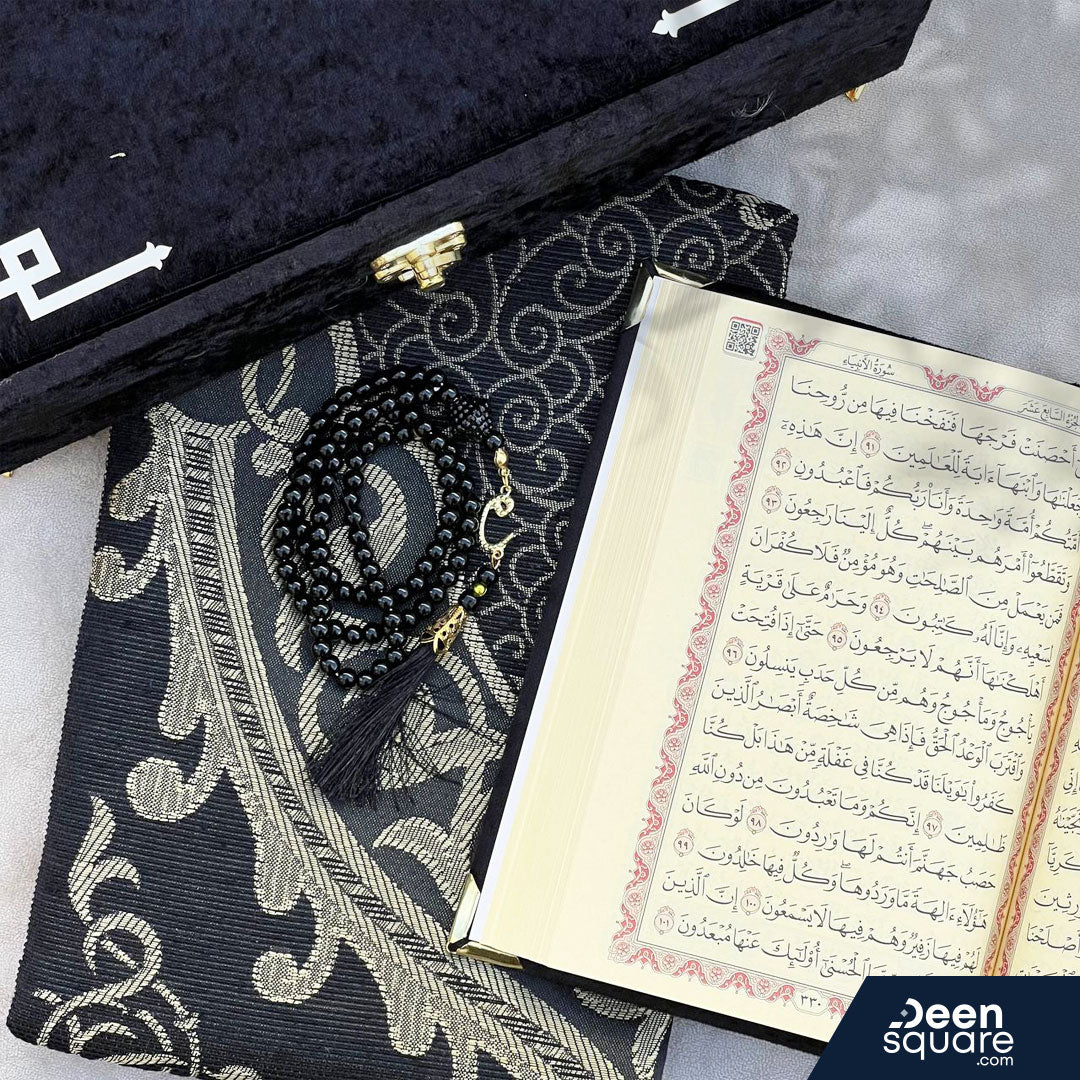 سُورَةُ الأَنبِيَاء
الجُزْءُ السَّابِعَ عَشَرَ
أَحْصَنَتْ فَرْجَهَا فَنَفَخْنَا فِيهَا مِن رُّوحِنَا
وَٱبْنَهَآ ءَايَةً لِّلْعَٰلَمِينَ ٩١ إِنَّ هَٰذِهِۦٓ
أُمَّتُكُمْ أُمَّةً وَٰحِدَةً وَأَنَا۠ رَبُّكُمْ فَٱعْبُدُونِ ٩٢
وَتَقَطَّعُوٓا۟ أَمْرَهُم بَيْنَهُمْ ۖ كُلٌّ إِلَيْنَا رَٰجِعُونَ ٩٣
فَمَن يَعْمَلْ مِنَ ٱلصَّٰلِحَٰتِ وَهُوَ مُؤْمِنٌ فَلَا كُفْرَانَ
لِسَعْيِهِۦ وَإِنَّا لَهُۥ كَٰتِبُونَ ٩٤ وَحَرَٰمٌ عَلَىٰ قَرْيَةٍ
أَهْلَكْنَٰهَآ أَنَّهُمْ لَا يَرْجِعُونَ ٩٥ حَتَّىٰٓ إِذَا فُتِحَتْ
يَأْجُوجُ وَمَأْجُوجُ وَهُم مِّن كُلِّ حَدَبٍ يَنسِلُونَ ٩٦
وَٱقْتَرَبَ ٱلْوَعْدُ ٱلْحَقُّ فَإِذَا هِىَ شَٰخِصَةٌ أَبْصَٰرُ ٱلَّذِينَ
كَفَرُوا۟ يَٰوَيْلَنَا قَدْ كُنَّا فِى غَفْلَةٍ مِّنْ هَٰذَا بَلْ كُنَّا
ظَٰلِمِينَ ٩٧ إِنَّكُمْ وَمَا تَعْبُدُونَ مِن دُونِ ٱللَّهِ
حَصَبُ جَهَنَّمَ أَنتُمْ لَهَا وَٰرِدُونَ ٩٨ لَوْ كَانَ
هَٰٓؤُلَآءِ ءَالِهَةً مَّا وَرَدُوهَا ۖ وَكُلٌّ فِيهَا خَٰلِدُونَ ٩٩
لَهُمْ فِيهَا زَفِيرٌ وَهُمْ فِيهَا لَا يَسْمَعُونَ ١٠٠ إِنَّ ٱلَّذِينَ
ٱلْحُسْنَىٰٓ أُو۟لَٰٓئِكَ عَنْهَا مُبْعَدُونَ ١٠١
٣٣٠
Deen
square
.com